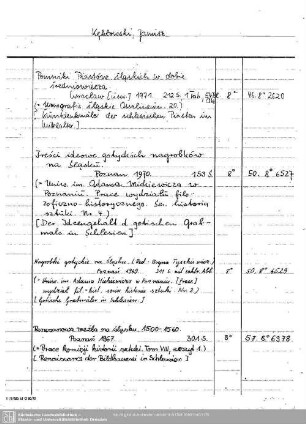 Kębłowski, Janusz
Pomniki Piastów śląskich w dobie
średniowiecza
Wrocław [usw.] 1971. 212 S. 8° 48. 8° 2020
(= Monografie Śląskie Ossolineum. 20.)
[Kunstdenkmäler der schlesischen Piasten im
Mittelalter.]
Treści ideowe gotyckich nagrobków
na Śląsku.
Poznań 1970. 193 S. 8° 50. 8° 6527
(= Uniw. im. Adama Mickiewicza w
Poznaniu. Prace wydziału filo-
zoficzno-historycznego. Ser. historia
sztuki. Nr. 4.)
[Der Ideengehalt d. gotischen Grab-
male in Schlesien]
Nagrobki gotyckie na Śląsku.
Poznań 1969. 8° 50. 8° 6529
(= Uniw. im. Adama Mickiewicza w Poznaniu. [Prace]
[Gotische Grabmäler in Schlesien.]
Renesansowa rzeźba na Śląsku. 1500-1560.
Poznań 1967. 301 S. 8° 57. 8° 6378
(= Prace Komisji historii sztuki. Tom VIII, zeszyt 1.)
[Renaissance der Bildhauerei in Schlesien]